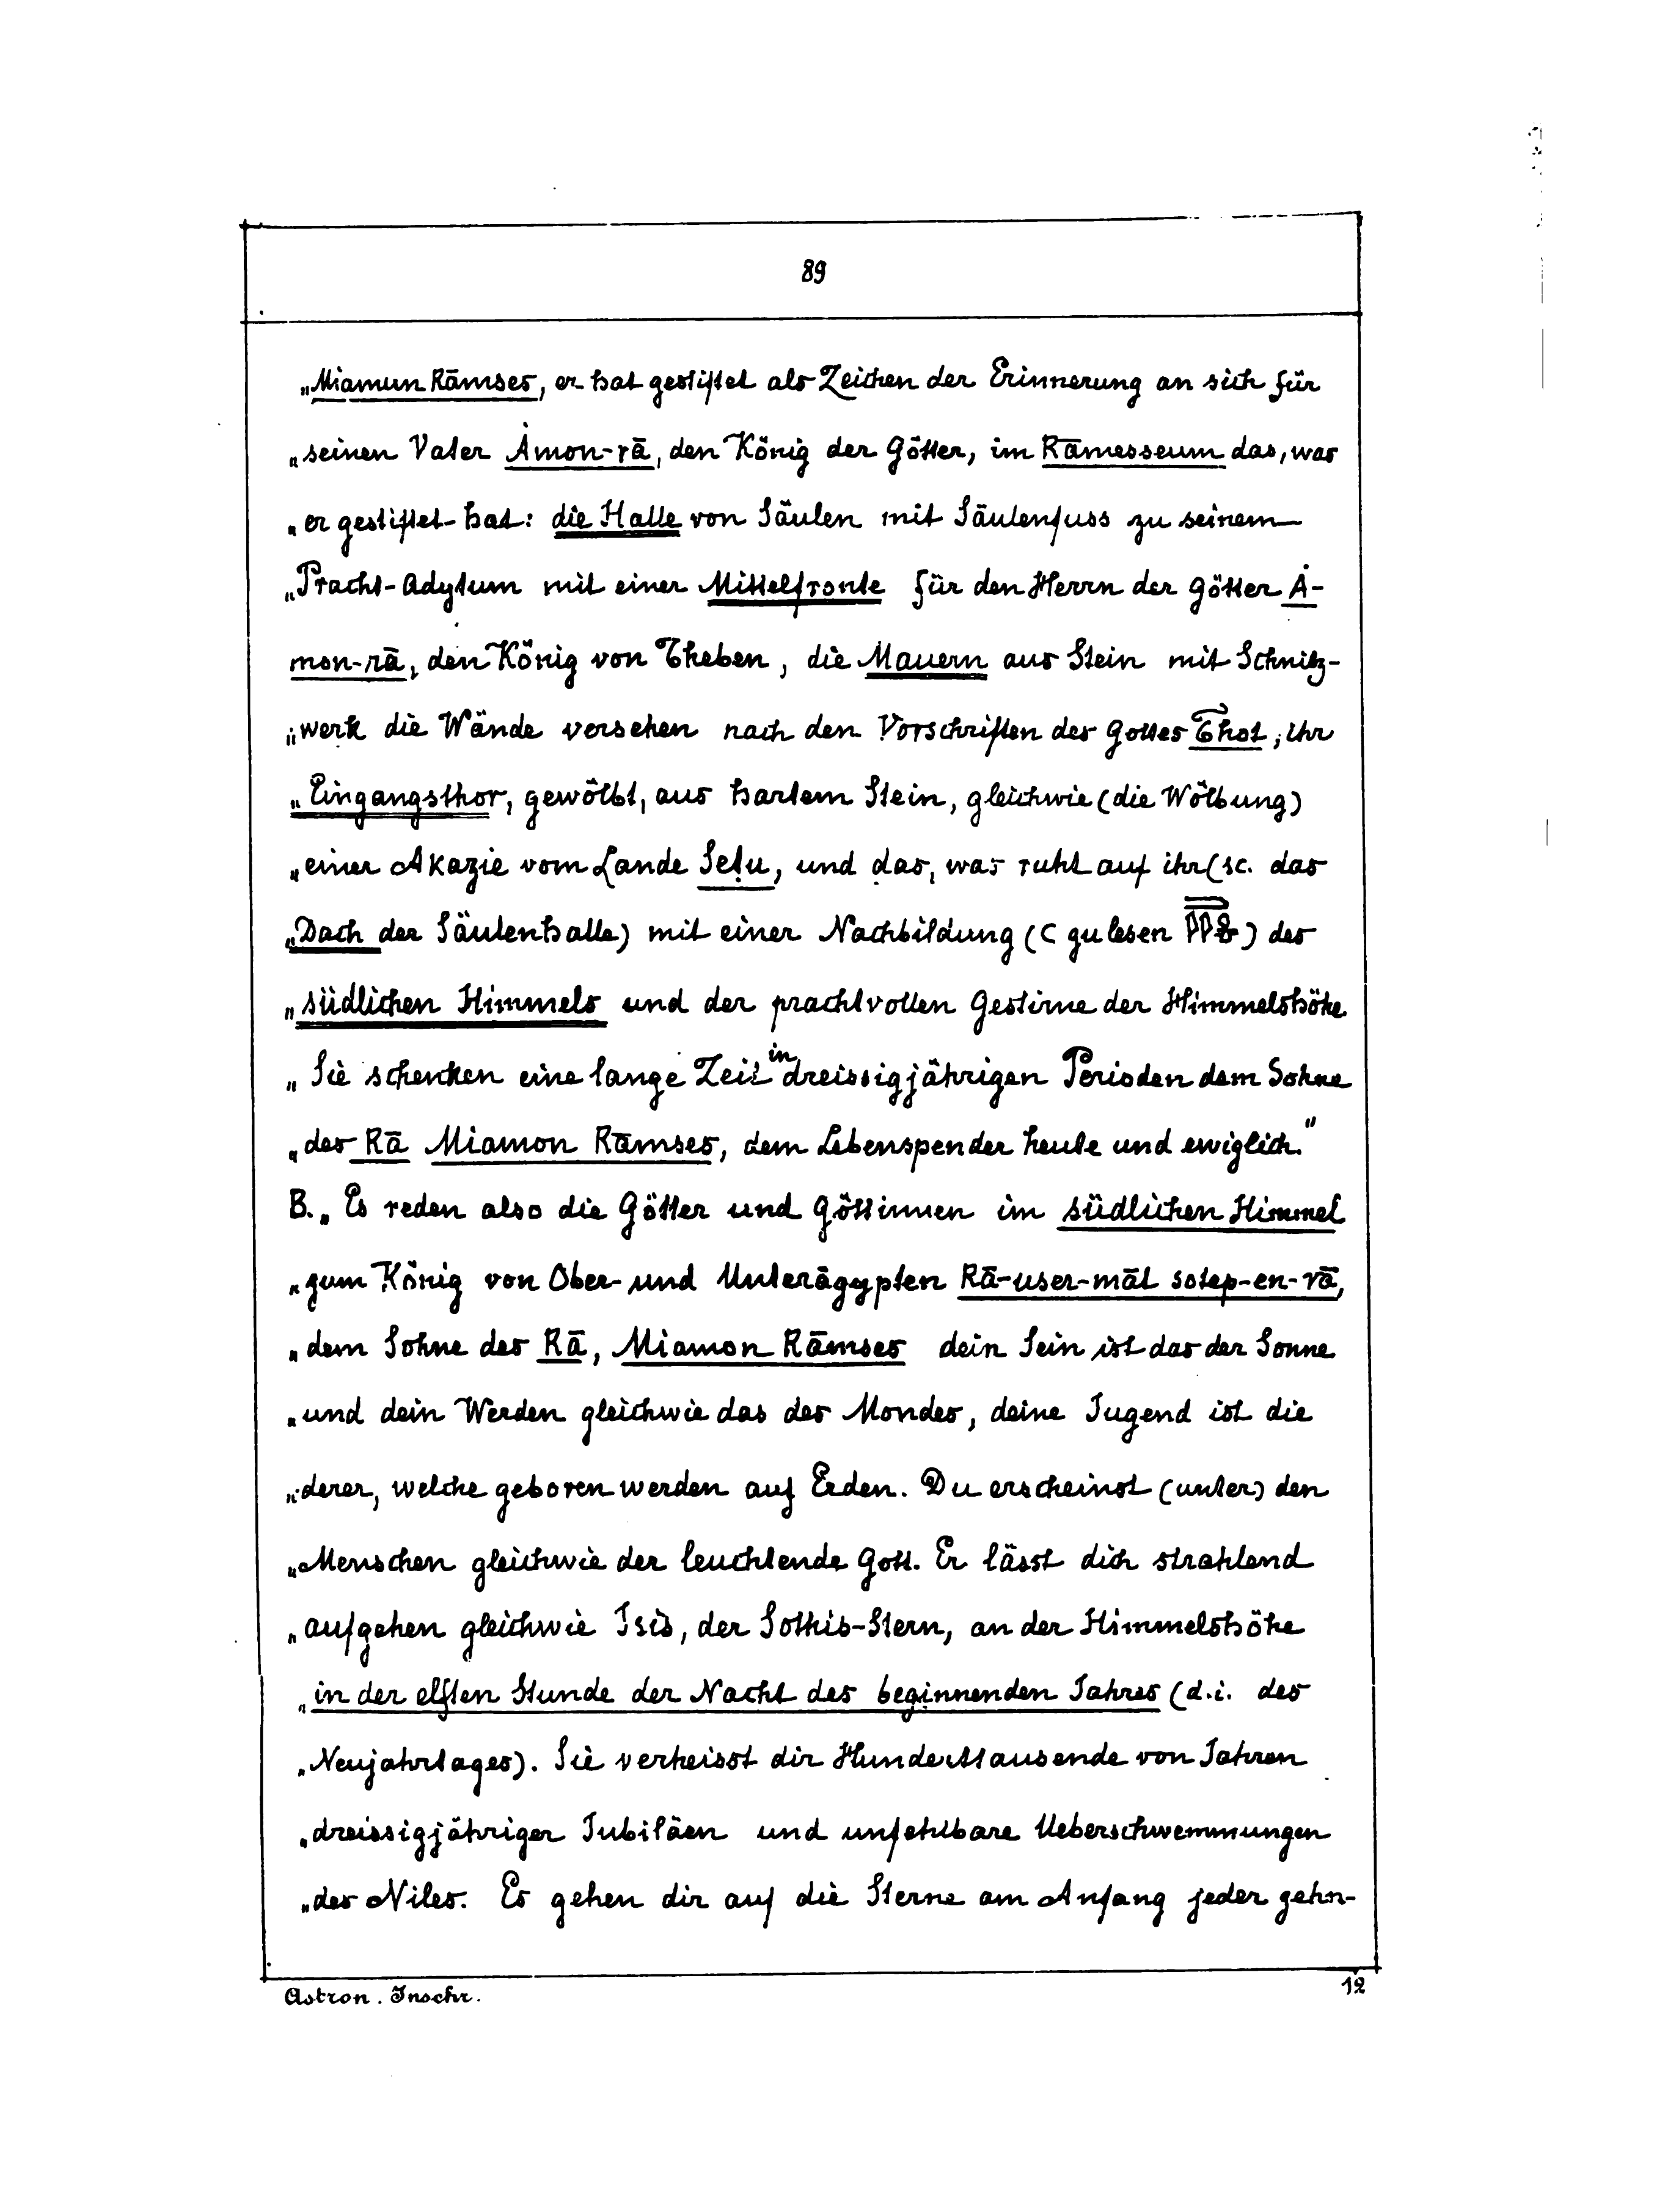 89
„Miamun Rāmses, er hat gestiftet als Zeichen der Erinnerung an sich für
„seinen Vater Åmon-rā, den König der Götter, im Rāmesseum das, was
„er gestiftet hat: die Halle von Säulen mit Säulenfuss zu seinem
„Pracht-Adytum mit einer Mittelfronte für den Herrn der Götter Å-
mon-rā, den König von Theben, die Mauern aus Stein mit Schnitz-
„werk die Wände versehen nach den Vorschriften des Gottes Thot, ihr
„Eingangsthor, gewölbt, aus hartem Stein, gleichwie (die Wölbung)
„einer Akazie vom Lande Seṭu, und das, was ruht auf ihr (sc. das
„Dach der Säulenhalle) mit einer Nachbildung (C zu lesen ) des
„südlichen Himmels und der prachtvollen Gestirne der Himmelshöhe.
„Sie schenken eine lange Zeit in dreissigjährigen Perioden dem Sohne
„des Rā Miamon Rāmses, dem Lebenspender heute und ewiglich."
B. „Es reden also die Götter und Göttinnen im südlichen Himmel
„zum König von Ober- und Unterägypten Rā-user-māt sotep-en-rā,
„dem Sohne des Rā, Miamon Rāmses dein Sein ist das der Sonne
„und dein Werden gleichwie das des Mondes, deine Jugend ist die
„derer, welche geboren werden auf Erden. Du erscheinst (unter) den
„Menschen gleichwie der leuchtende Gott. Er lässt dich strahlend
„aufgehen gleichwie Isis, der Sothis-Stern, an der Himmelshöhe
„in der elften Stunde der Nacht des beginnenden Jahres (d.i. des
„Neujahrstages). Sie verheisst dir Hunderttausende von Jahren
„dreissigjähriger Jubiläen und unfehlbare Ueberschwemmungen
„des Niles. Es gehen dir auf die Sterne am Anfang jeder zehn-
Astron. Inschr. 12